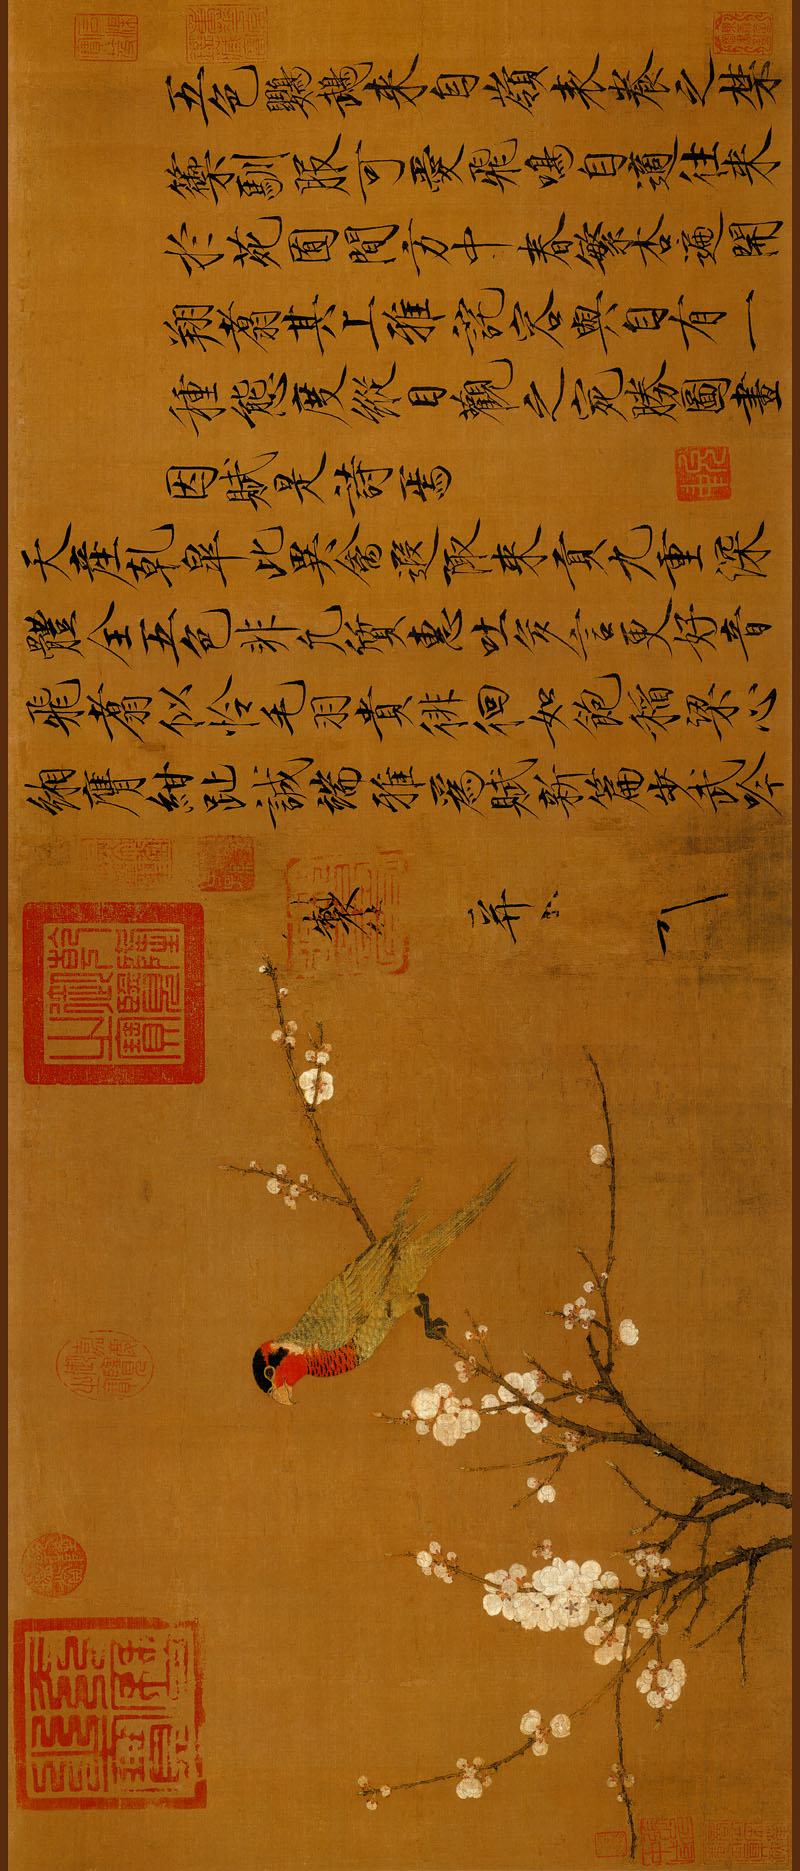 五色鸚鵡來自嶺表養之禁
籞馴服可愛飛鳴自適往來
於苑囿間方中春繁杏遍開
翔翥其上雅詫容與自有一
種態度縱目觀之宛勝圖畫
因賦是詩焉
天產乾皋此異禽遐陬來貢九重深
體全五色非凡質惠吐多言更好音
飛翥似憐毛羽貴徘徊如飽稻粱心
緗膺紺趾誠端雅為賦新篇步武吟
製 并
乾隆御覽之寶
嘉慶御覽之寶